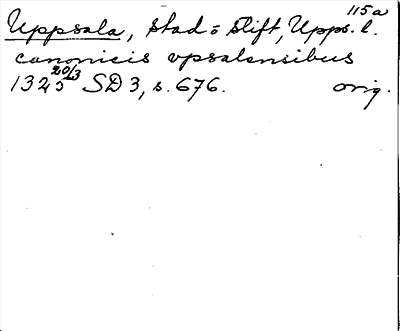 115a
Uppsala, stad o stift, Upps. l.
canonicis vpsalensibus
1325 20/3 SD 3, s. 676. orig.